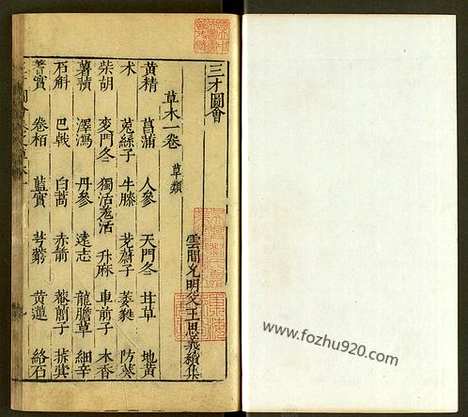 三才圖會
草木一卷 草類
雲間允明父王思義續集
黃精 菖蒲 人參 天門冬 甘草 地黃
朮 菟絲子 牛膝 茺蔚子 萎蕤 防葵
柴胡 麥門冬 獨活羌活 升麻 車前子 木香
薯蕷 澤瀉 丹參 遠志 龍膽草 細辛
石斛 巴戟 白蒿 赤箭 菴䕡子 菥蓂
蓍實 卷柏 藍實 芎藭 黃連 絡石
www.fozhu920.com